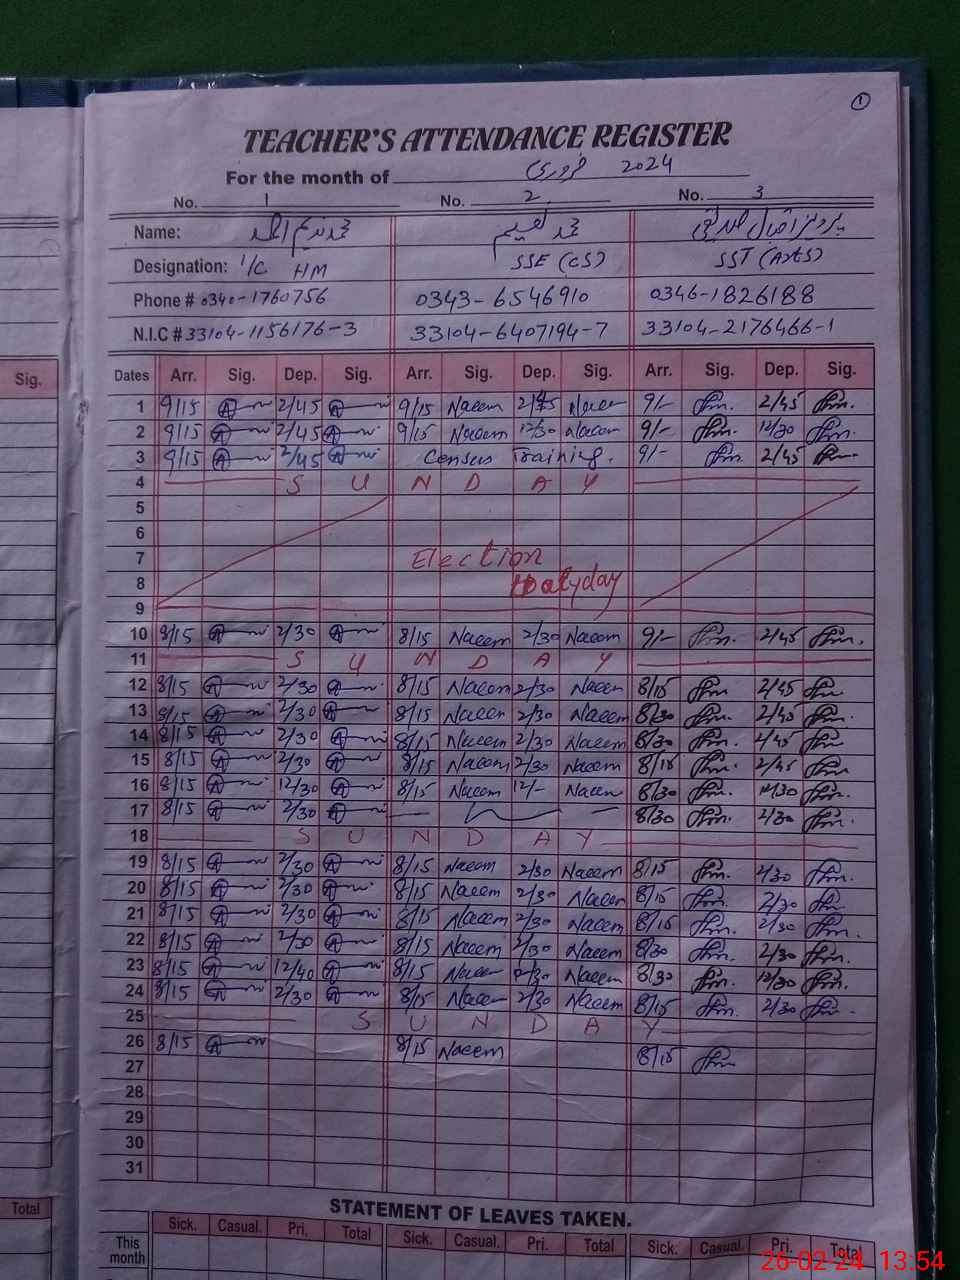 1
TEACHER'S ATTENDANCE REGISTER
For the month of فروری 2024
No. 1 No. 2 No. 3
Name: محمد ندیم اسلم محمد نعیم پرویز اقبال صدیقی
Designation: I/C HM SSE (CS) SST (Arts)
Phone # 0340-1760756 0343-6546910 0346-1826188
N.I.C # 33104-1156176-3 33104-6407194-7 33104-2176466-1
Sig. Dates Arr. Sig. Dep. Sig. Arr. Sig. Dep. Sig. Arr. Sig. Dep. Sig.
1 9/15 2/45 9/15 Naeem 2/45 Naeem 9/- 2/45
2 9/15 2/45 9/15 Naeem 12/30 Naeem 9/- 12/30
3 9/15 2/45 Census Training. 9/- 2/45
4 SUNDAY
5
6
7 Election
8 Holyday
9
10 8/15 2/30 8/15 Naeem 2/30 Naeem 9/- 2/45
11 SUNDAY
12 8/15 2/30 8/15 Naeem 2/30 Naeem 8/15 2/45
13 8/15 2/30 8/15 Naeem 2/30 Naeem 8/30 2/45
14 8/15 2/30 8/15 Naeem 2/30 Naeem 8/30 2/45
15 8/15 2/30 8/15 Naeem 2/30 Naeem 8/15 2/45
16 8/15 12/30 8/15 Naeem 12/- Naeem 8/30 12/30
17 8/15 2/30 8/30 2/30
18 SUNDAY
19 8/15 2/30 8/15 Naeem 2/30 Naeem 8/15 2/30
20 8/15 2/30 8/15 Naeem 2/30 Naeem 8/15 2/30
21 8/15 2/30 8/15 Naeem 2/30 Naeem 8/15 2/30
22 8/15 2/30 8/15 Naeem 2/30 Naeem 8/30 2/30
23 8/15 12/40 8/15 Naeem 12/30 Naeem 8/30 12/30
24 8/15 2/30 8/15 Naeem 2/30 Naeem 8/15 2/30
25 SUNDAY
26 8/15 8/15 Naeem 8/15
27
28
29
30
31
Total STATEMENT OF LEAVES TAKEN.
Sick. Casual. Pri. Total Sick. Casual. Pri. Total Sick. Casual. Pri. Total
This month
26-02-24 13:54